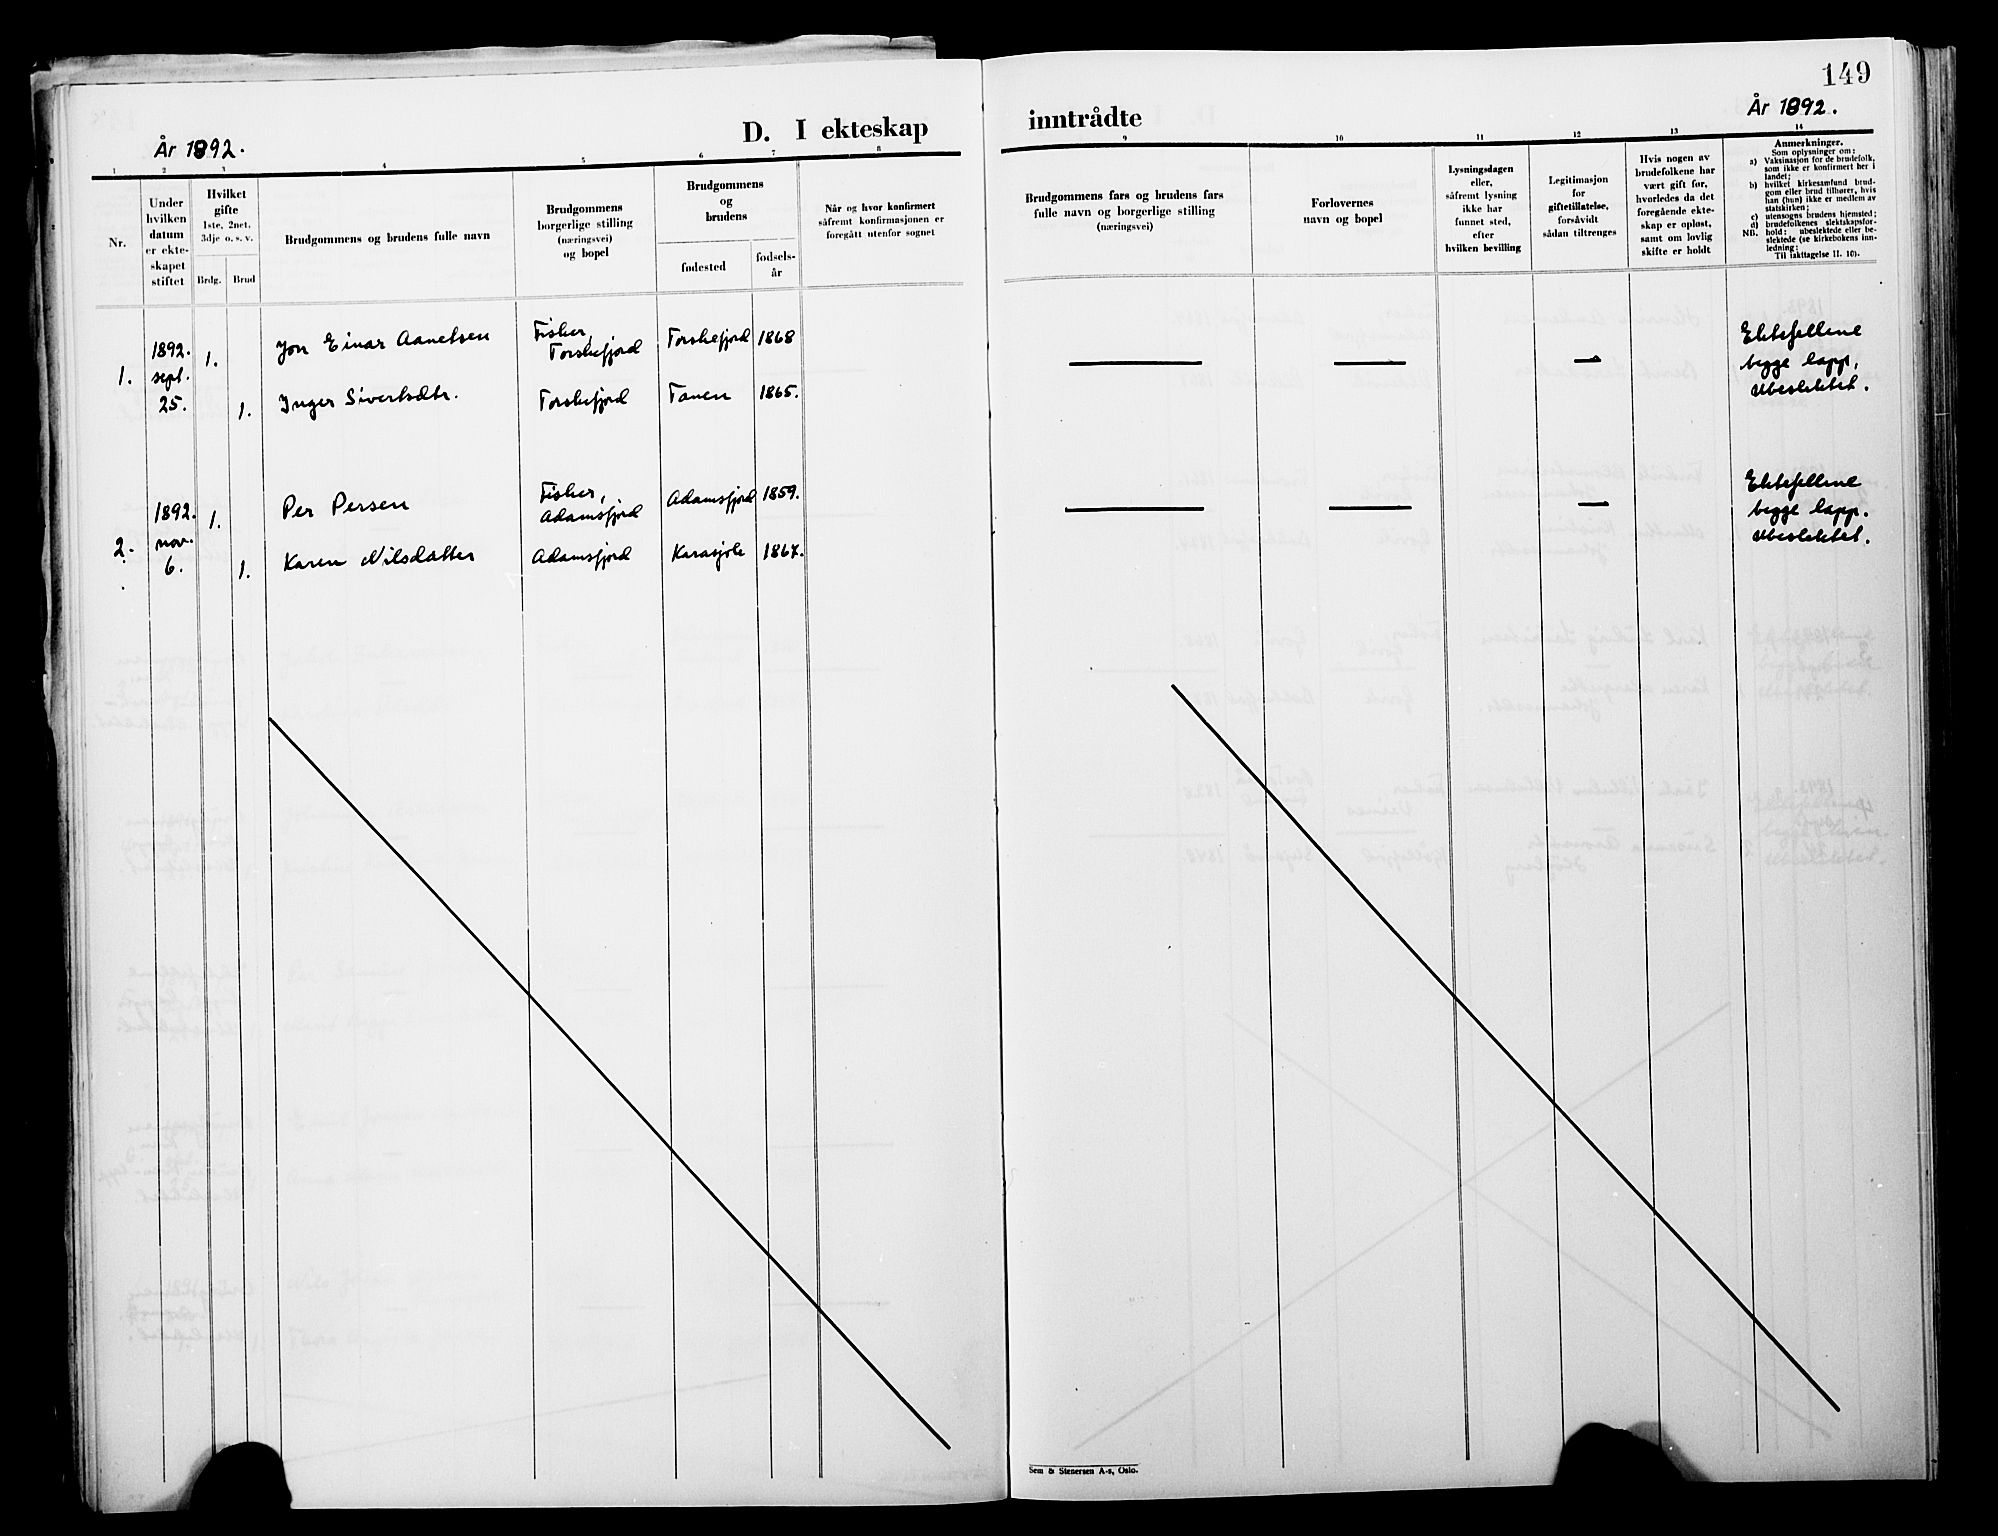 149
År 1892.
År 1892.
D. I ekteskap
inntrådte
1 2 3 4 5 6 7 8
9 10 11 12 13 14
Nr.
Under
hvilken
datum
er ekte-
skapet
stiftet
Hvilket
gifte
1ste, 2net.
3dje o. s. v.
Brdg. Brud
Brudgommens og brudens fulle navn
Brudgommens
borgerlige stilling
(næringsvei)
og bopel
Brudgommens
og
brudens
fødested
fødsels-
år
Når og hvor konfirmert
såfremt konfirmasjonen er
foregått utenfor sognet
Brudgommens fars og brudens fars
fulle navn og borgerlige stilling
(næringsvei)
Forlovernes
navn og bopel
Lysningsdagen
eller,
såfremt lysning
ikke har
funnet sted,
efter
hvilken bevilling
Legitimasjon
for
giftetillatelse,
forsåvidt
sådan tiltrenges
Hvis nogen av
brudefolkene har
vært gift før,
hvorledes da det
foregående ekte-
skap er opløst,
samt om lovlig
skifte er holdt
Anmerkninger.
Som oplysninger om:
a) Vaksinasjon for de brudefolk,
som ikke er konfirmert her i
landet;
b) hvilket kirkesamfund brud-
gom eller brud tilhører, hvis
han (hun) ikke er medlem av
statskirken;
c) utensogns brudens hjemsted;
d) brudefolkenes slektskapsfor-
NB. hold: ubeslektede eller be-
slektede (se kirkebokens inn-
ledning;
Til iakttagelse II. 10).
1.
1892.
sept.
25.
1. Jon Einar Aanetsen
Fisher,
Torskefjord
Torskefjord 1868
1. Inger Sivertsdtr. Torskefjord Tanen 1865.
Ektefellene
begge lapp,
ubeslektet.
2.
1892.
nov.
6.
1. Per Persen
Fisher,
Adamsfjord
Adamsfjord 1859.
1. Karen Nilsdatter Adamsfjord Karasjok 1867.
Ektefellene
begge lapp.
ubeslektet.
Sem & Stenersen A-s, Oslo.